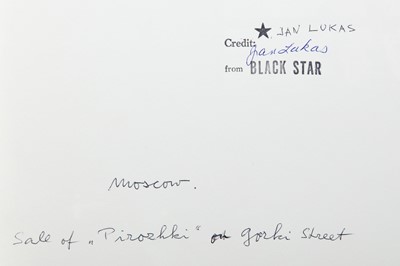 ★ JAN LUKAS
Credit: Jan Lukas
from BLACK STAR
Moscow.
Sale of „Pirozhki" on Gorki Street